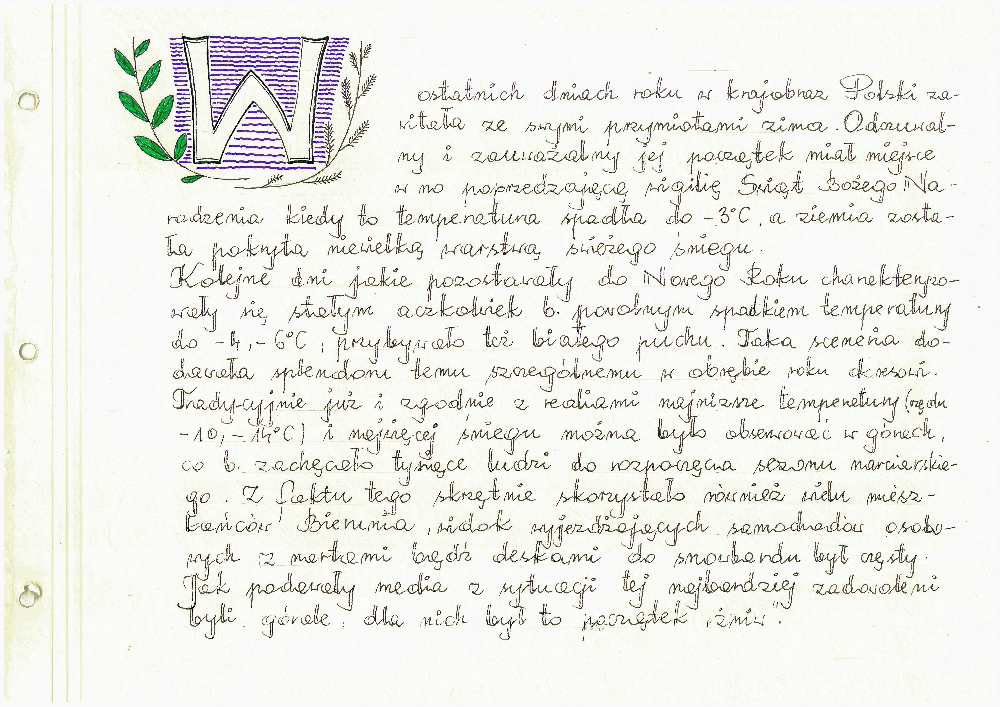 W ostatnich dniach roku w krajobraz Polski za-
witała ze swymi przymiotami zima. Odczuwal-
ny i zauważalny jej początek miał miejsce
w no poprzedzającą wigilię Świąt Bożego Na-
rodzenia kiedy to temperatura spadła do -3°C, a ziemia zosta-
ła pokryta niewielką warstwą świeżego śniegu.
Kolejne dni jakie pozostawały do Nowego Roku charakteryzo-
wały się stałym aczkolwiek b. powolnym spadkiem temperatury
do -4, -6°C, przybywało też białego puchu. Taka sceneria do-
dawała splendoru temu szczególnemu w obrębie roku okresowi.
Tradycyjnie już i zgodnie z realiami najniższe temperatury (rzędu
-10, -14°C) i najwięcej śniegu można było obserwować w górach,
co b. zachęcało tysiące ludzi do rozpoczęcia sezonu narciarskie-
go. Z faktu tego skrzętnie skorzystało również wielu miesz-
kańców Bierunia, widok wyjeżdżających samochodów osobo-
wych z nartami bądź deskami do snowbardu był częsty.
Jak podawały media z sytuacji tej najbardziej zadowoleni
byli górale, dla nich był to początek "żniw".